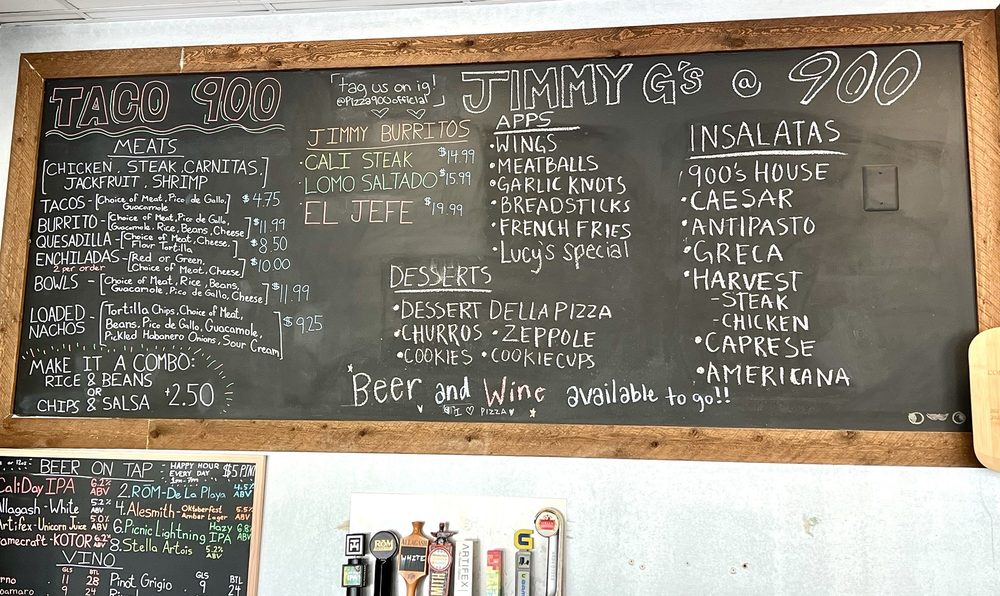 TACO 900
MEATS
[CHICKEN, STEAK, CARNITAS,
JACKFRUIT, SHRIMP]
TACOS-[Choice of Meat, Pico de Gallo, Guacamole] $4.75
BURRITO-[Choice of Meat, Pico de Gallo,
Guacamole, Rice, Beans, Cheese] $11.99
QUESADILLA-[Choice of Meat, Cheese,
Flour Tortilla $8.50
ENCHILADAS-[Red or Green,
2 per order Choice of Meat, Cheese] $10.00
BOWLS-[Choice of Meat, Rice, Beans,
Guacamole, Pico de Gallo, Cheese] $11.99
LOADED NACHOS-[Tortilla Chips, Choice of Meat,
Beans, Pico de Gallo, Guacamole,
Pickled Habanero Onions, Sour Cream] $9.25
MAKE IT A COMBO:
RICE & BEANS
OR
CHIPS & SALSA +2.50
tag us on ig!
@pizza900official
JIMMY G'S @ 900
JIMMY BURRITOS
·CALI STEAK $14.99
·LOMO SALTADO $15.99
EL JEFE $19.99
APPS
•WINGS
•MEATBALLS
•GARLIC KNOTS
•BREADSTICKS
•FRENCH FRIES
•Lucy's special
DESSERTS
•DESSERT DELLA PIZZA
•CHURROS •ZEPPOLE
•COOKIES •COOKIECUPS
INSALATAS
•900's HOUSE
•CAESAR
•ANTIPASTO
•GRECA
•HARVEST
-STEAK
-CHICKEN
•CAPRESE
•AMERICANA
Beer and Wine available to go!!
I ♡ PIZZA
BEER ON TAP
HAPPY HOUR
EVERY DAY
CaliDay IPA 6.2% ABV
2.RÖM-De La Playa 4.5% ABV
Allagash-White 5.2% ABV
4.Alesmith-Oktoberfest
Amber Lager 5.5% ABV
Artifex-Unicorn Juice 5.0% ABV
6.Picnic Lightning Hazy IPA
KOTOR
8.Stella Artois 5.2% ABV
VINO
GLS BTL
11 28
Pinot Grigio
GLS BTL
9 24
9 24
RÖM
ALLAGASH
WHITE
ARTIFEX